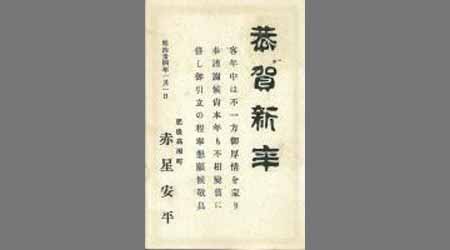 恭賀新年
客年中は不一方御厚情を蒙り
奉謝候尚本年も不相變舊に
倍し御引立の程懇願候敬具
年一月一日
肥後高瀬町
赤星安平